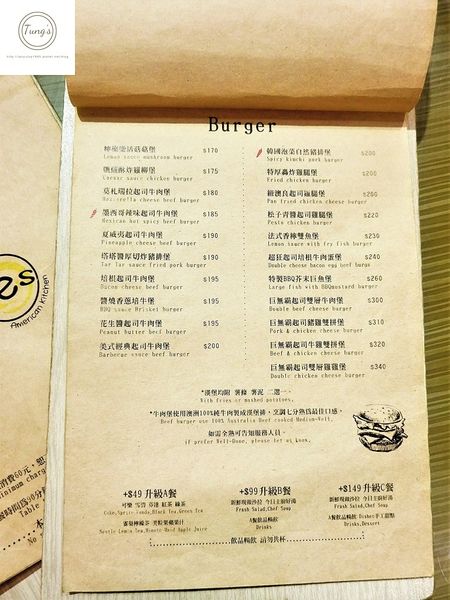 Tung's
Burger
檸檬鹽活菇菇堡 $170
Lemon sauce mushroom burger
$175
sauce chicken burger
莫札瑞拉起司牛肉堡 $180
Mozzarella cheese beef burger
墨西哥辣味起司牛肉堡 $185
Mexican hot spicy beef burger
夏威夷起司牛肉堡 $190
Pineapple cheese beef burger
塔塔醬厚切炸豬排堡 $190
Tar Tar sauce fried pork burger
培根起司牛肉堡 $195
Bacon cheese beef burger
醬燒香蔥培牛堡 $195
BBQ sauce Brisket burger
花生醬起司牛肉堡 $195
Peanut butter beef burger
美式經典起司牛肉堡 $200
Barbecue sauce beef burger
韓國泡菜自然豬排堡 $200
Spicy kimchi pork burger
特厚轟炸雞腿堡 $200
Fried chicken burger
紐澳良起司雞腿堡 $200
Pan fried chicken cheese burger
松子青醬起司雞腿堡 $220
Pesto chicken burger
法式香檸雙魚堡 $230
Lemon sauce with fry fish burger
超狂起司培根牛肉蛋堡 $240
Double cheese bacon egg beef burger
特製BBQ芥末巨魚堡 $260
Large fish with BBQmustard burger
巨無霸起司雙層牛肉堡 $300
Double beef cheese burger
巨無霸起司豬雞雙拼堡 $310
Pork & chicken cheese burger
巨無霸起司牛雞雙拼堡 $320
Beef & chicken cheese burger
巨無霸起司雙層雞雞堡 $340
Double chicken cheese burger
*漢堡均附 薯條 薯泥 二選一。
With fries or mashed potatoes.
*牛肉堡使用澳洲100%純牛肉製成漢堡排，烹調七分熟為最佳口感。
Beef burger use 100% Australia Beef cooked Medium-Well.
如需全熟可告知服務人員。
if prefer Well-Done, please let us know.
+$49 升級A餐
可樂 雪碧 芬達 紅茶 綠茶
Coke,Sprite,Fanda,Black Tea,Green Tea
雀巢檸檬茶 美粒果蘋果汁
Nestle Lemon Tea,Minute Maid Apple Juice
+$99 升級B餐
新鮮現做沙拉 今日主廚好湯
Fresh Salad,Chef Soup
A餐飲品暢飲
Drinks
+$149 升級C餐
新鮮現做沙拉 今日主廚好湯
Fresh Salad,Chef Soup
A餐飲品暢飲 Dishes手工甜點
Drinks,Dessert
飲品暢飲 請勿共杯
American Kitchen